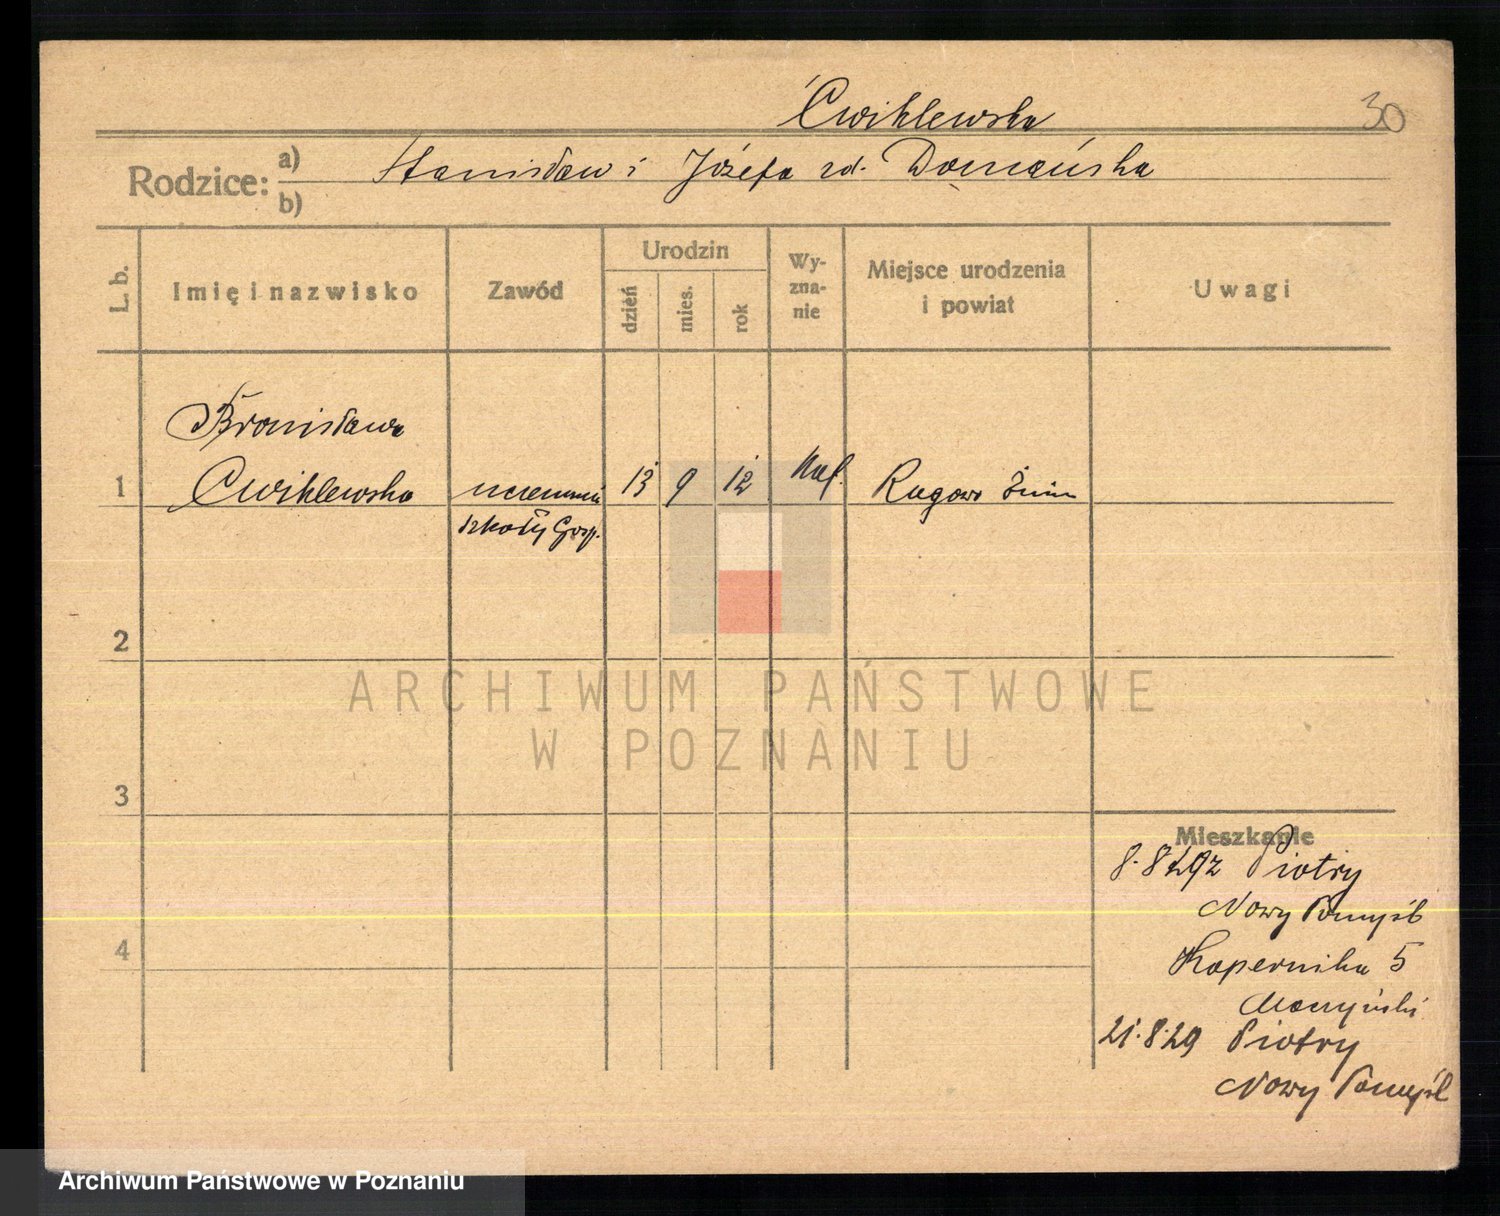 Ćwiklewska
30
Rodzice: a) Stanisław i Józefa zd. Domańska
b)
L. b. Imię i nazwisko Zawód Urodzin dzień mies. rok Wy-zna-nie Miejsce urodzenia i powiat Uwagi
Bronisława
1 Cwiklewska uczennica 13 9 12 kat. Rogowo Żnin
szkoły Gosp.
2
ARCHIWUM PAŃSTWOWE
W POZNANIU
3
Mieszkanie
8.8 Piotry
Nowy Tomyśl
4
Kopernika 5
21.8.29 Piotry
Nowy Tomyśl
Archiwum Państwowe w Poznaniu